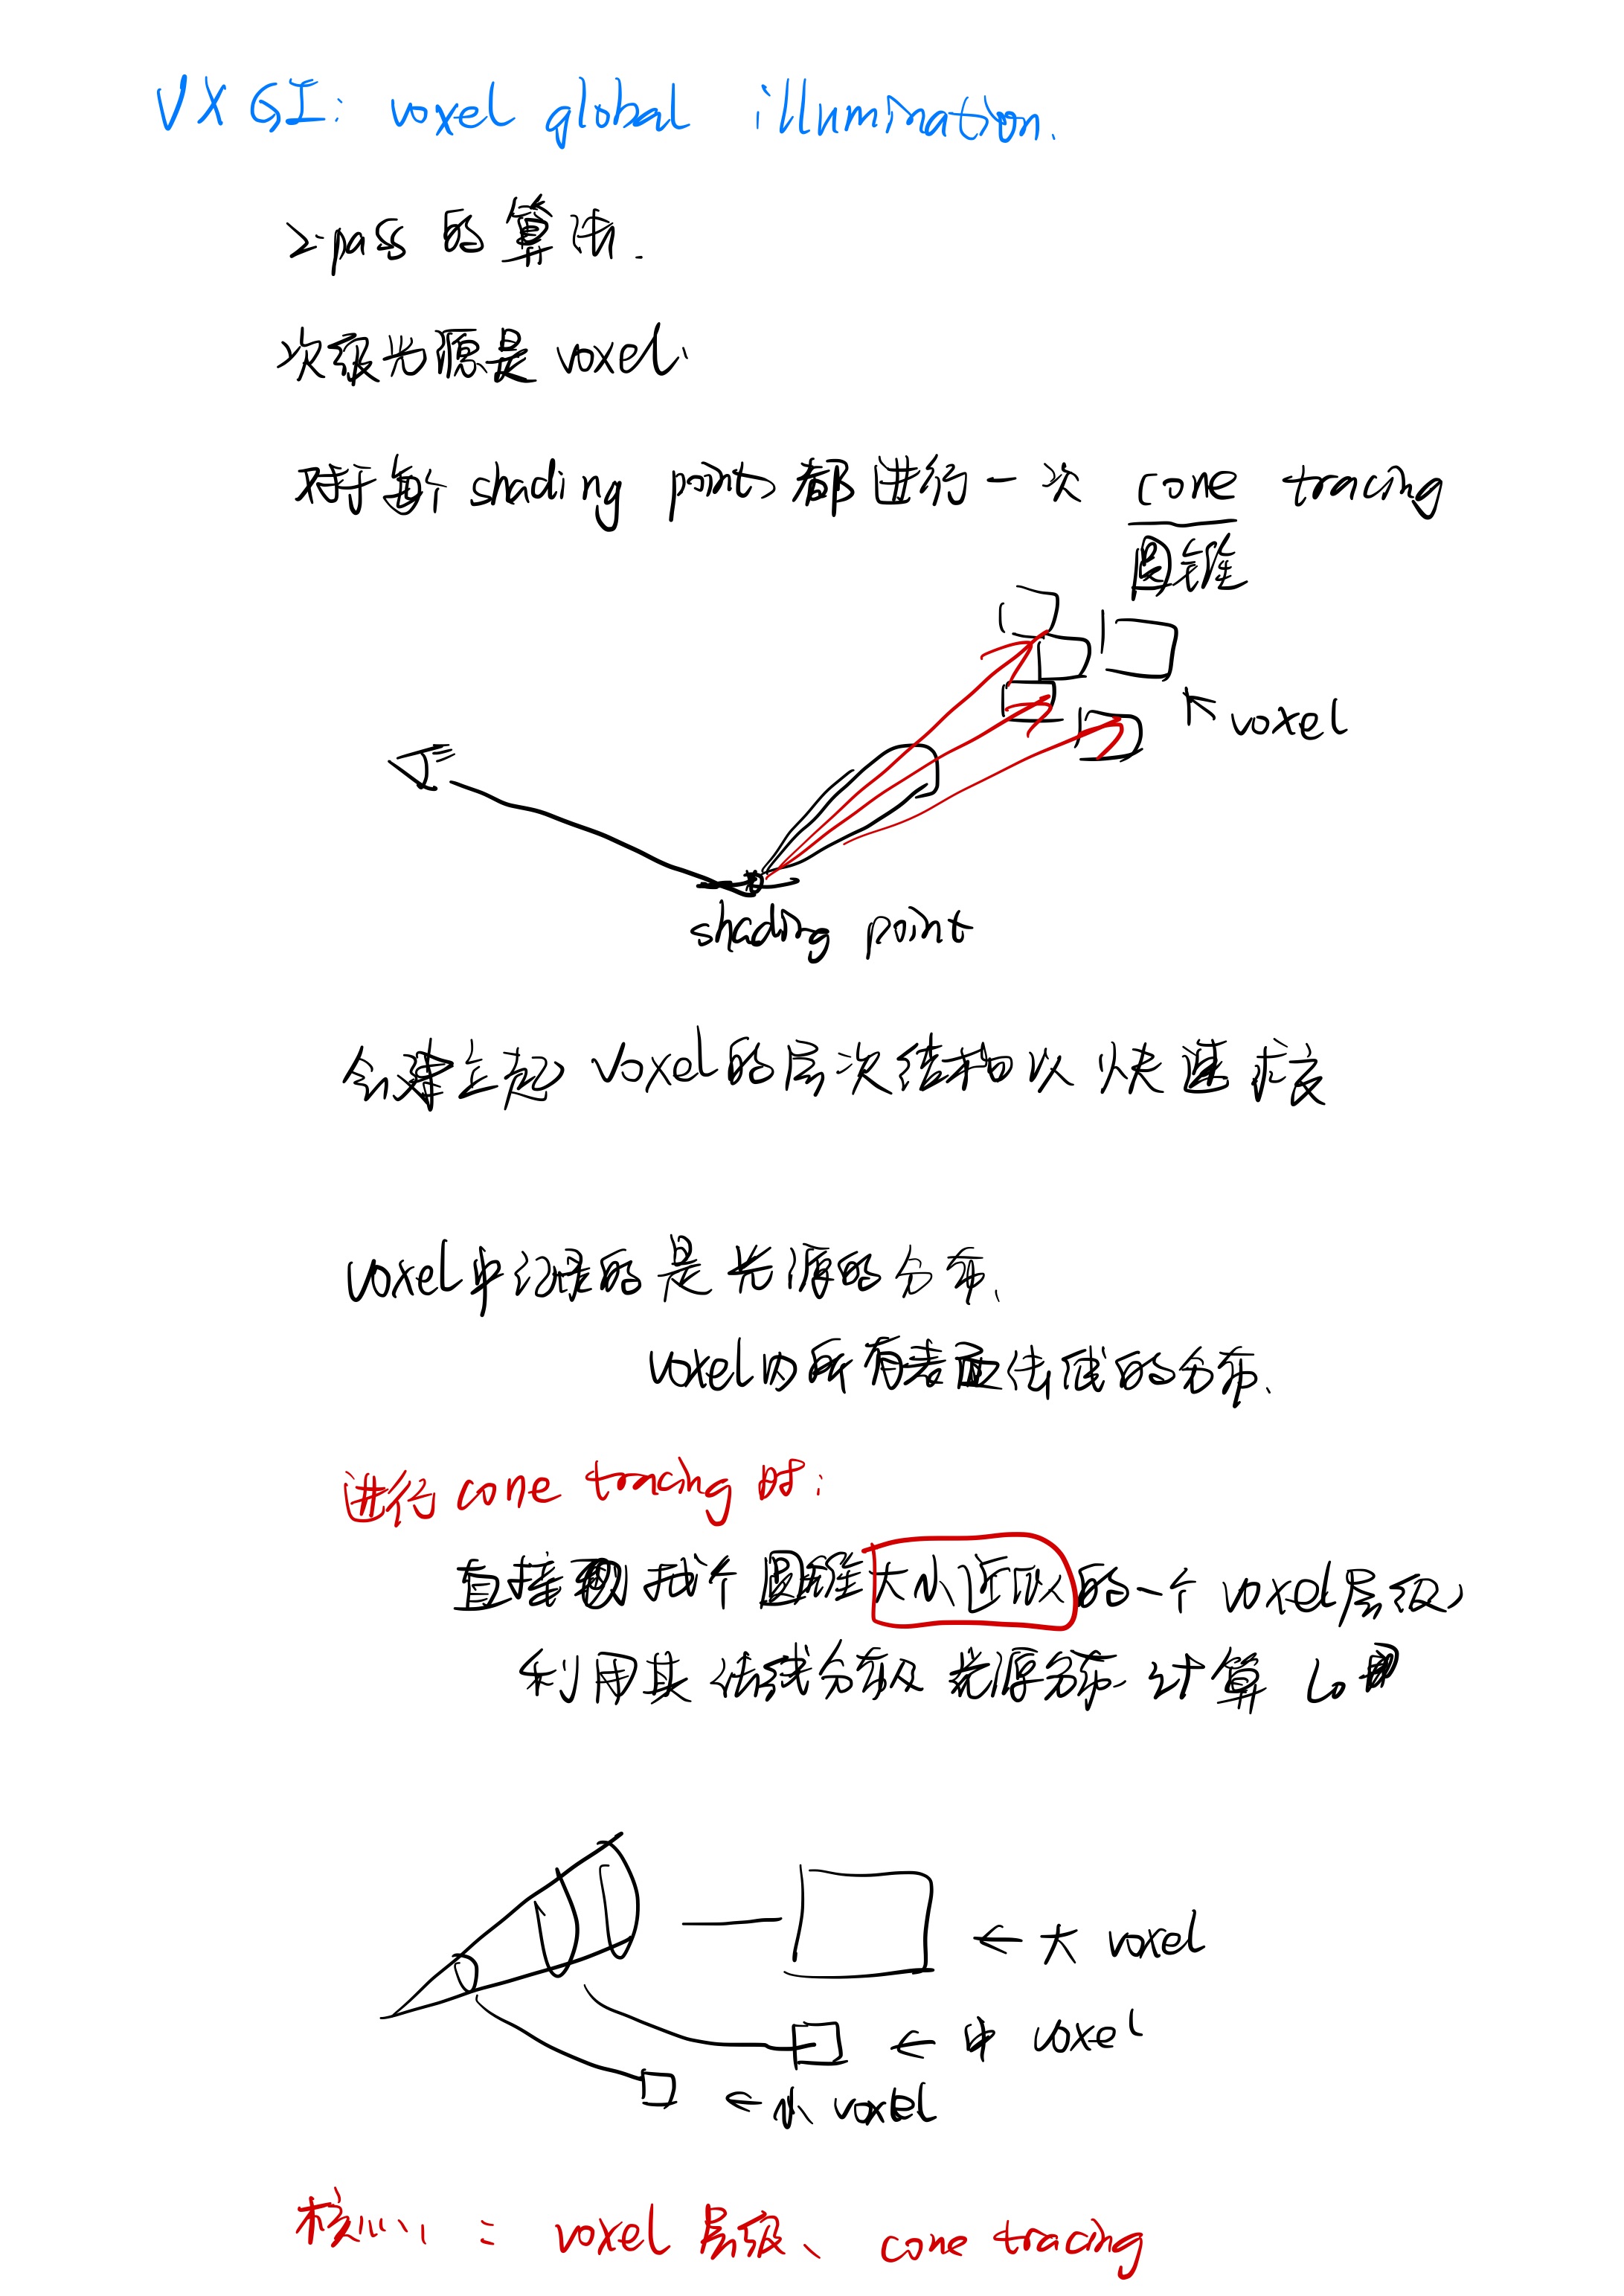 VXGI: voxel global illumination.
2-pass 的算法.
次级光源是 voxel.
对于每个 shading point, 都进行一次 cone tracing
圆锥
voxel
shading point
会建立起 voxel的层次结构以快速求交
voxel中记录的是光源的分布、
voxel内所有表面法线的分布、
进行 cone tracing 时:
直接 找个圆锥大小近似的一个 voxel层级,
利用其法线分布及光源分布计算 Lo
← 大 voxel
← 中 voxel
← 小 voxel
核心: voxel 层级、cone tracing